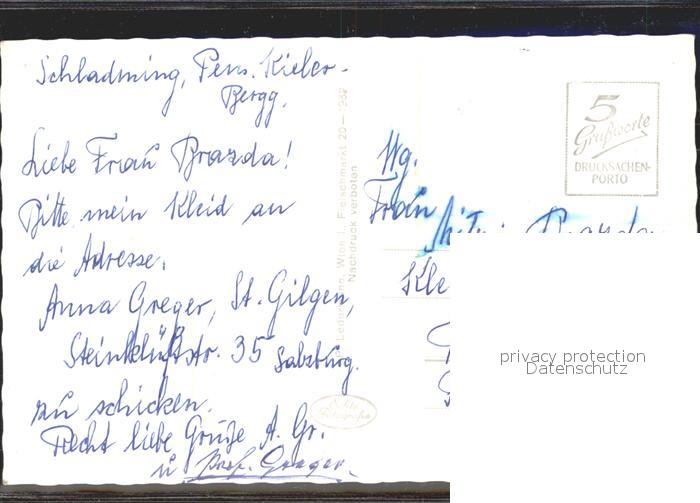 Schladming, Pens. Kieler-
Bergg.
Liebe Frau Brazda!
Bitte mein Kleid an
die Adresse:
Anna Greger, St. Gilgen,
str. 35 Salzburg.
zu schicken.
Recht liebe Grüße A. Gr.
u Prof. Greger.
Fleischmarkt 20 – 1982
Nachdruck verboten
5
Grußworte
DRUCKSACHEN-
PORTO
Wg.
Frau
Brazda
Kle
privacy protection
Datenschutz